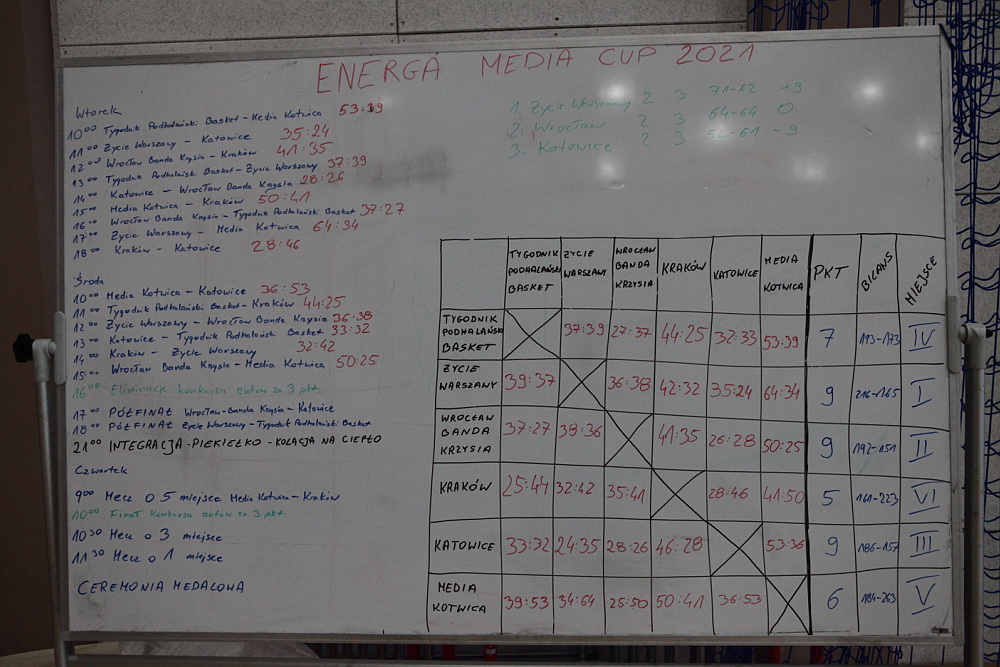 ENERGA MEDIA CUP 2021
Wtorek
10⁰⁰ Tygodnik Podhalański Basket - Media Kotwica 53:39
11⁰⁰ Życie Warszawy - Katowice 35:24
12⁰⁰ Wrocław Banda Krysia - Kraków 41:35
13⁰⁰ Tygodnik Podhalański Basket - Życie Warszawy 37:39
14⁰⁰ Katowice - Wrocław Banda Krysia 28:26
15⁰⁰ Media Kotwica - Kraków 50:41
16⁰⁰ Wrocław Banda Krysia - Tygodnik Podhalański Basket 37:27
17⁰⁰ Życie Warszawy - Media Kotwica 64:34
18⁰⁰ Kraków - Katowice 28:46
1. Życie Warszawy 2 3 71-62 +9
2. Wrocław 2 3 64-64 0
3. Katowice 2 3 52-61 -9
Środa
10⁰⁰ Media Kotwica - Katowice 36:53
11⁰⁰ Tygodnik Podhalański Basket - Kraków 44:25
12⁰⁰ Życie Warszawy - Wrocław Banda Krysia 36:38
13⁰⁰ Katowice - Tygodnik Podhalański Basket 33:32
14⁰⁰ Kraków - Życie Warszawy 32:42
15⁰⁰ Wrocław Banda Krysia - Media Kotwica 50:25
16⁰⁰ Eliminacje konkursu rzutów za 3 pkt
17⁰⁰ PÓŁFINAŁ Wrocław-Banda Krysia - Katowice
18⁰⁰ PÓŁFINAŁ Życie Warszawy - Tygodnik Podhalański Basket
21⁰⁰ INTEGRACJA - PIEKIEŁKO - KOLACJA NA CIEPŁO
Czwartek
9⁰⁰ Mecz o 5 miejsce Media Kotwica - Kraków
10⁰⁰ Finał konkursu rzutów za 3 pkt.
10³⁰ Mecz o 3 miejsce
11³⁰ Mecz o 1 miejsce
CEREMONIA MEDALOWA
TYGODNIK PODHALAŃSKI BASKET ŻYCIE WARSZAWY WROCŁAW BANDA KRZYSIA KRAKÓW KATOWICE MEDIA KOTWICA PKT BILANS MIEJSCE
TYGODNIK PODHALAŃSKI BASKET 37:39 27:37 44:25 32:33 53:39 7 193-173 IV
ŻYCIE WARSZAWY 39:37 36:38 42:32 35:24 64:34 9 216-165 I
WROCŁAW BANDA KRZYSIA 37:27 38:36 41:35 26:28 50:25 9 192-151 II
KRAKÓW 25:44 32:42 35:41 28:46 41:50 5 161-223 VI
KATOWICE 33:32 24:35 28:26 46:28 53:36 9 186-157 III
MEDIA KOTWICA 39:53 34:64 25:50 50:41 36:53 6 184-263 V